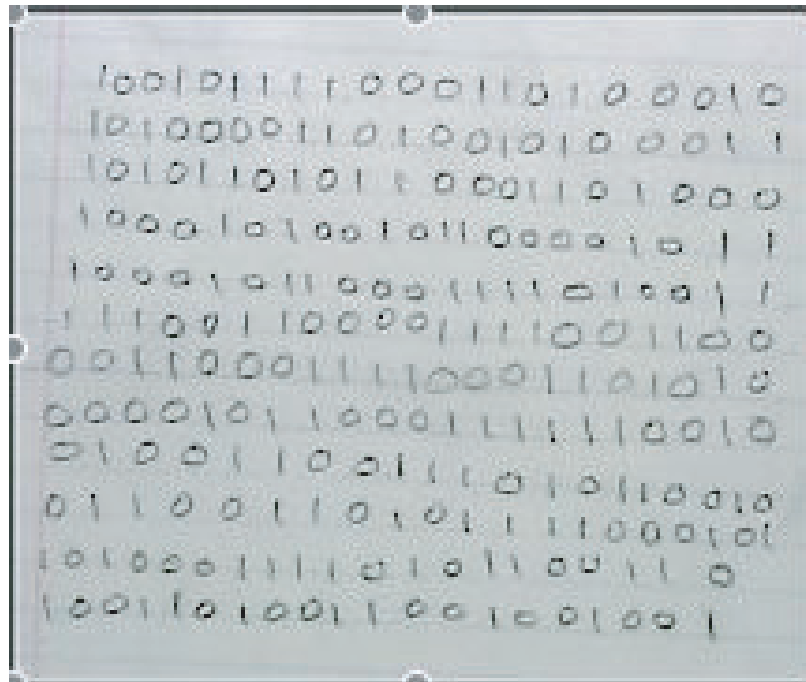 1001011110001101000010
1010000110100101000011
10101101011000011010000
100010100101100001011
1000101100011110100011
111001100001111001100
0011000111100011010010
0000101100011111110010
010011001110101100010
011001101011110001 01
10100011110101100110
10011010011001001001